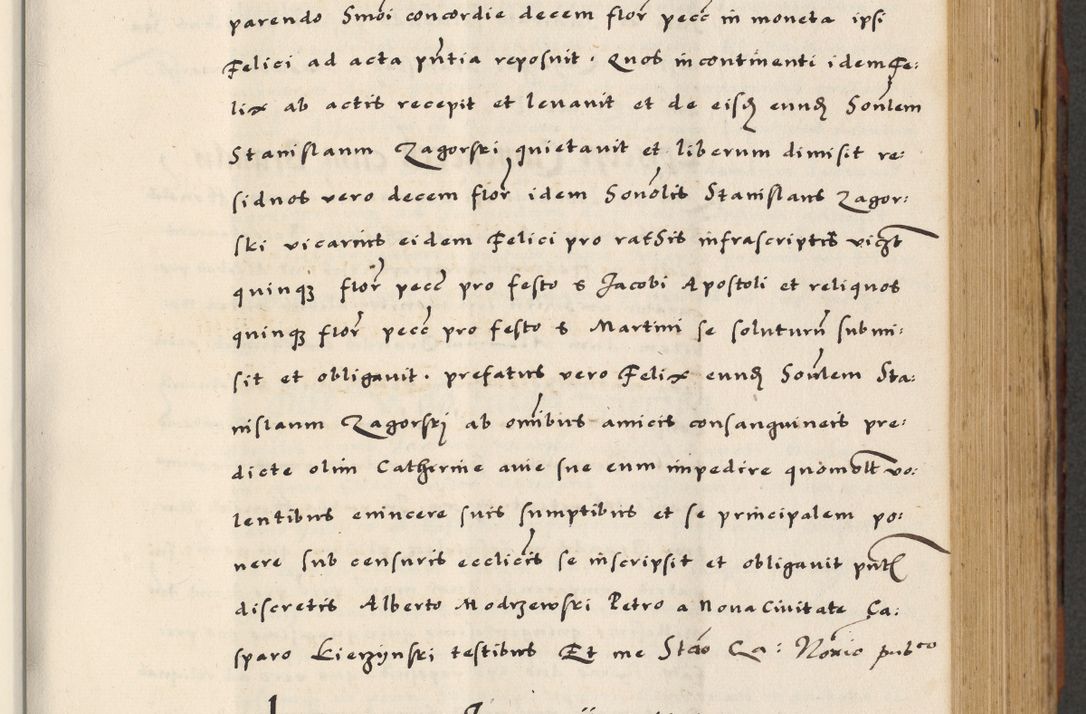 parendo Smoi concordie decem flor pecc in moneta ipsi
Felici ad acta pñtia reposuit . Quos incontinenti idem Fe:
lix ab actis recepit et levauit et de eisdꝫ eundꝫ Sonlem
Stanislaum Zagorski quietauit et liberum dimisit re:
siduos vero decem flor idem Honolis Stanislaus Zagor:
ski vicarius eidem Felici pro ratis infrascriptis vicꝫt
quinqꝫ flor pecc pro festo s Jacobi Apostoli et reliquos
quinqꝫ flor pecc pro festo s Martini se soluturũ submi:
sit et obligauit . prefatus vero Felix eundꝫ Honlem Sta:
nislaum Zagorskj ab omibus amicis consanguineis pre:
dicte olim Catherine auie sue eum impedire quomolt vo:
lentibus euincere suis sumptibus et se principalem po:
nere sub censuris ecclicis se inscripsit et obligauit pnt
discretis Alberto Modrzewski Petro a Nova Civitate Ca:
sparo Kierzynski testibus Et me Stao Ca: Norio pubco